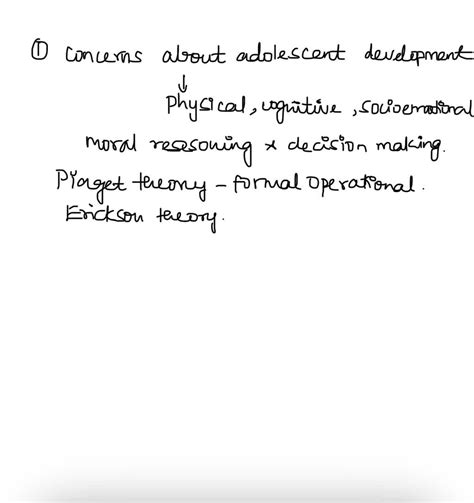 ① Concerns about adolescent development
↓
Physical, cognitive, socioemotional
moral reasoning & decision making.
Piaget theory - formal operational.
Erickson theory.